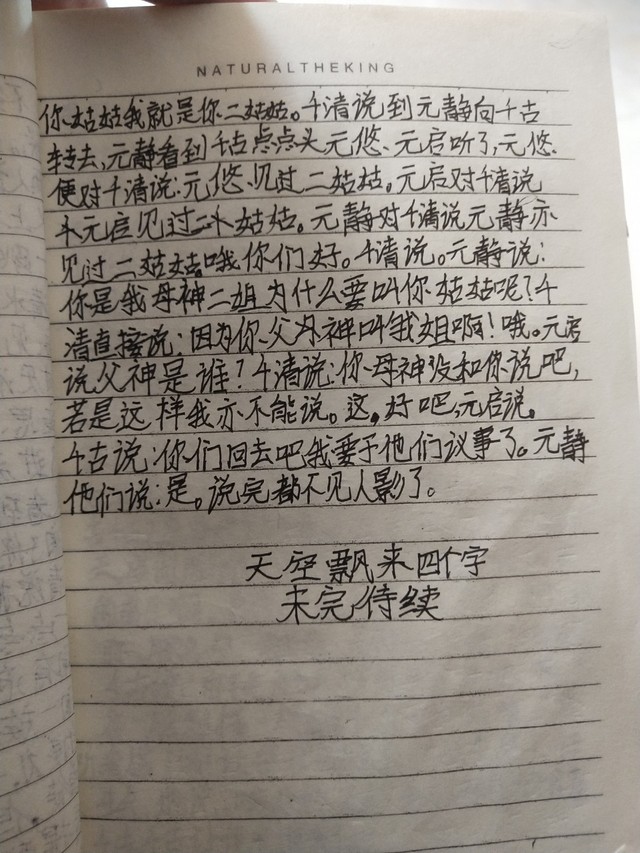 NATURALTHEKING
你姑姑我就是你二姑姑。千清说到元静向千古
转去、元静看到千古点点头元悠、元启听了、元悠、
便对千清说:元悠、见过二姑姑。元启对千清说
元启见过二姑姑。元静对千清说元静亦
见过二姑姑。哦你们好。千清说。元静说:
你是我母神二姐为什么要叫你姑姑呢?千
清直接说:因为你父神叫我姐啊!哦。元启
说父神是谁?千清说:你母神没和你说吧,
若是这样我亦不能说。这。好吧,元启说。
千古说:你们回去吧我要于他们议事了。元静
他们说:是。说完都不见人影了。
天空飘来四个字
未完待续